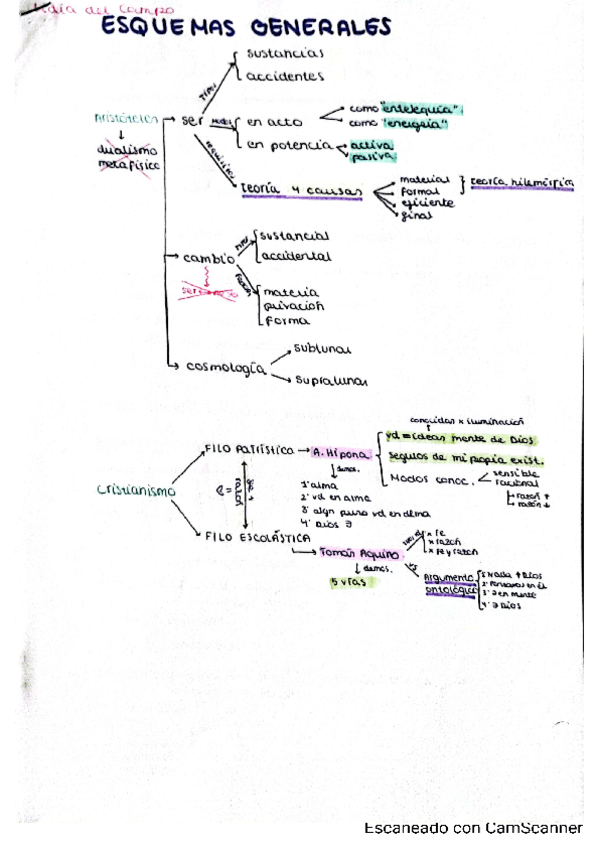 Lidia del Campo
ESQUEMAS GENERALES
sustancias
accidentes
tipos
Aristóteles → ser
modos
en acto
como "entelequia"
como "energeia"
dualismo
metafísico
en potencia
activa
pasiva
requisitos
teoría 4 causas
material
formal
eficiente
final
teoría hilemórfica
cambio
tipos
sustancial
accidental
materia
privación
forma
cosmología
sublunar
supralunar
Cristianismo
FILO PATRÍSTICA → A. Hipona
conocidas x iluminación
vd = ideas mente de Dios
seguros de mi propia exist.
Modos conoc.
sensible
racional
razón ↑
razón ↓
↓ demos.
1º alma
2º vd en alma
3º algn puso vd en alma
4º Dios ∃
FILO ESCOLÁSTICA
Tomás Aquino
x fe
x razón
x fe y razón
↓ demos.
5 vías
vs
Argumento
ontológico
1º Nada + Dios
2º Pensamos en él
3º ∃ en mente
4º ∃ Dios
Escaneado con CamScanner